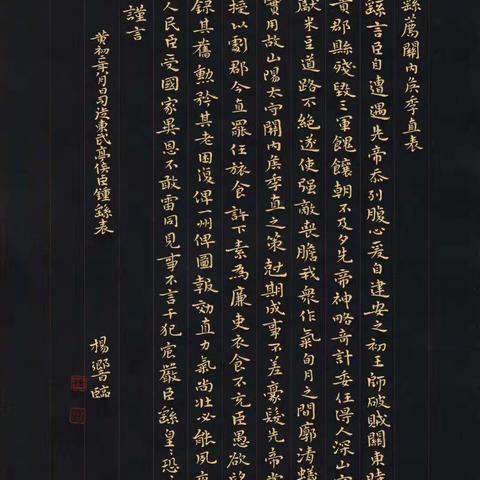 繇薦關内侯季直表
繇言臣自遭遇先帝忝列腹心爰自建安之初王師破賊關東時
貴郡縣殘毀三軍餽饟朝不及夕先帝神略奇計委任得人深山窮
獻米豆道路不絕遂使強敵喪膽我衆作氣旬月之間廓清蟻
實用故山陽太守關内侯季直之策剋期成事不差豪髮先帝賞
授以劇郡今直罷任旅食許下素為廉吏衣食不充臣愚欲望
錄其舊勳矜其老困復俾一州俾圖報効直力氣尚壯必能夙夜
人民臣受國家異恩不敢雷同見事不言干犯宸嚴臣繇皇〻恐〻
謹言
黃初二年八月日司徒東武亭侯臣鍾繇表
楊響臨